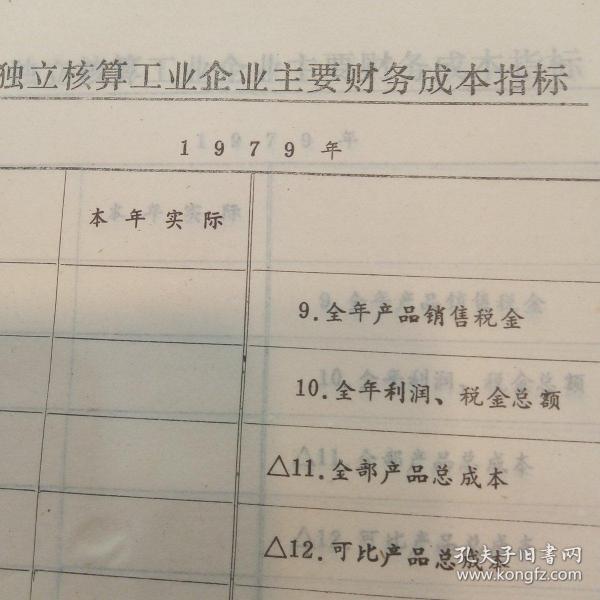 独立核算工业企业主要财务成本指标
1979年
本年实际
9.全年产品销售税金
10.全年利润、税金总额
△11.全部产品总成本
△12.可比产品总成本
孔夫子旧书网
www.kongfz.com